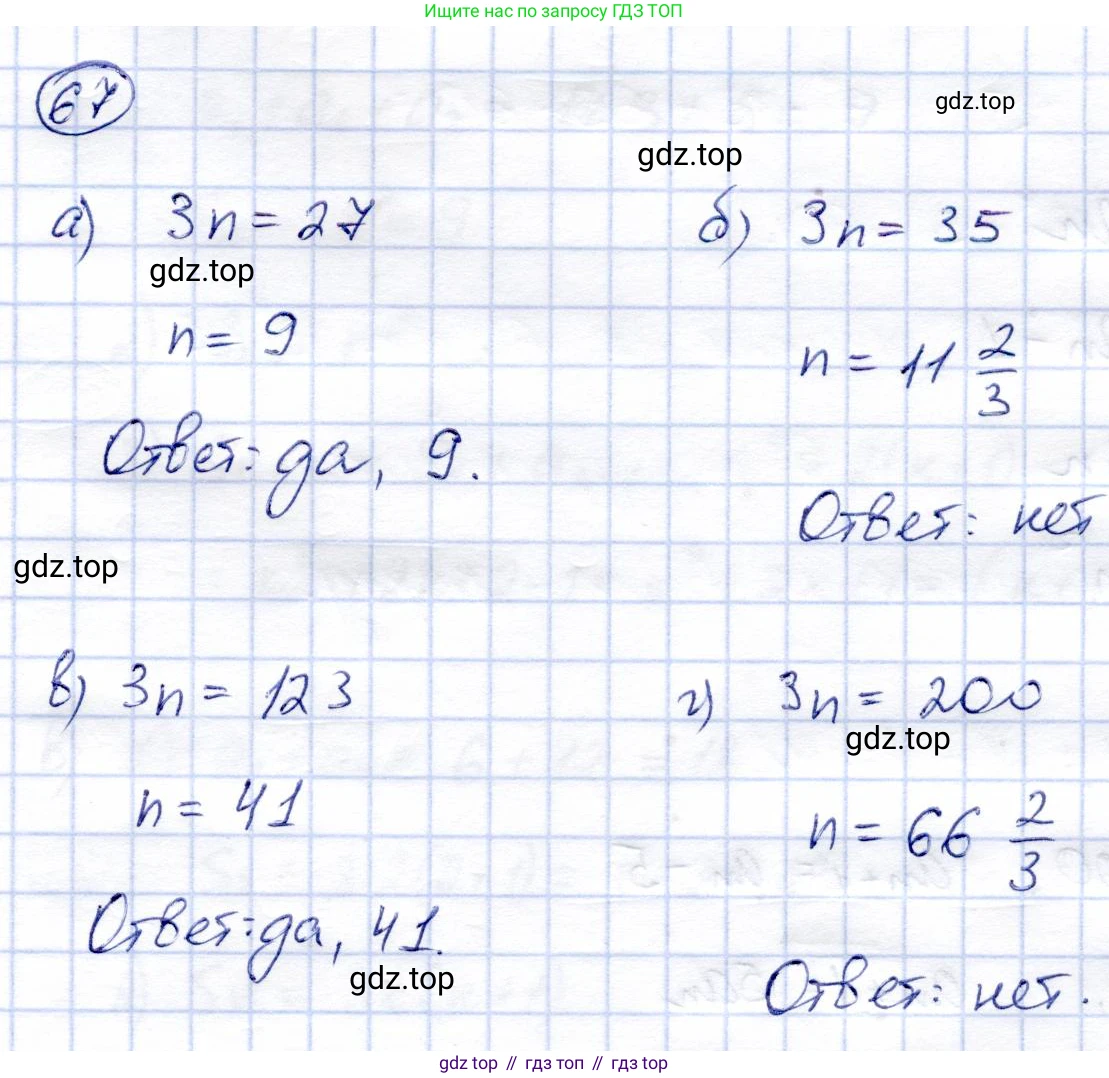 Ищите нас по запросу ГДЗ ТОП
67
gdz.top
gdz.top
а) 3n = 27
б) 3n = 35
gdz.top
n = 9
n = 11 2/3
Ответ: да, 9.
Ответ: нет
gdz.top
в) 3n = 123
г) 3n = 200
gdz.top
n = 41
n = 66 2/3
Ответ: да, 41.
gdz.top
Ответ: нет.
gdz top // гдз топ // гдз top